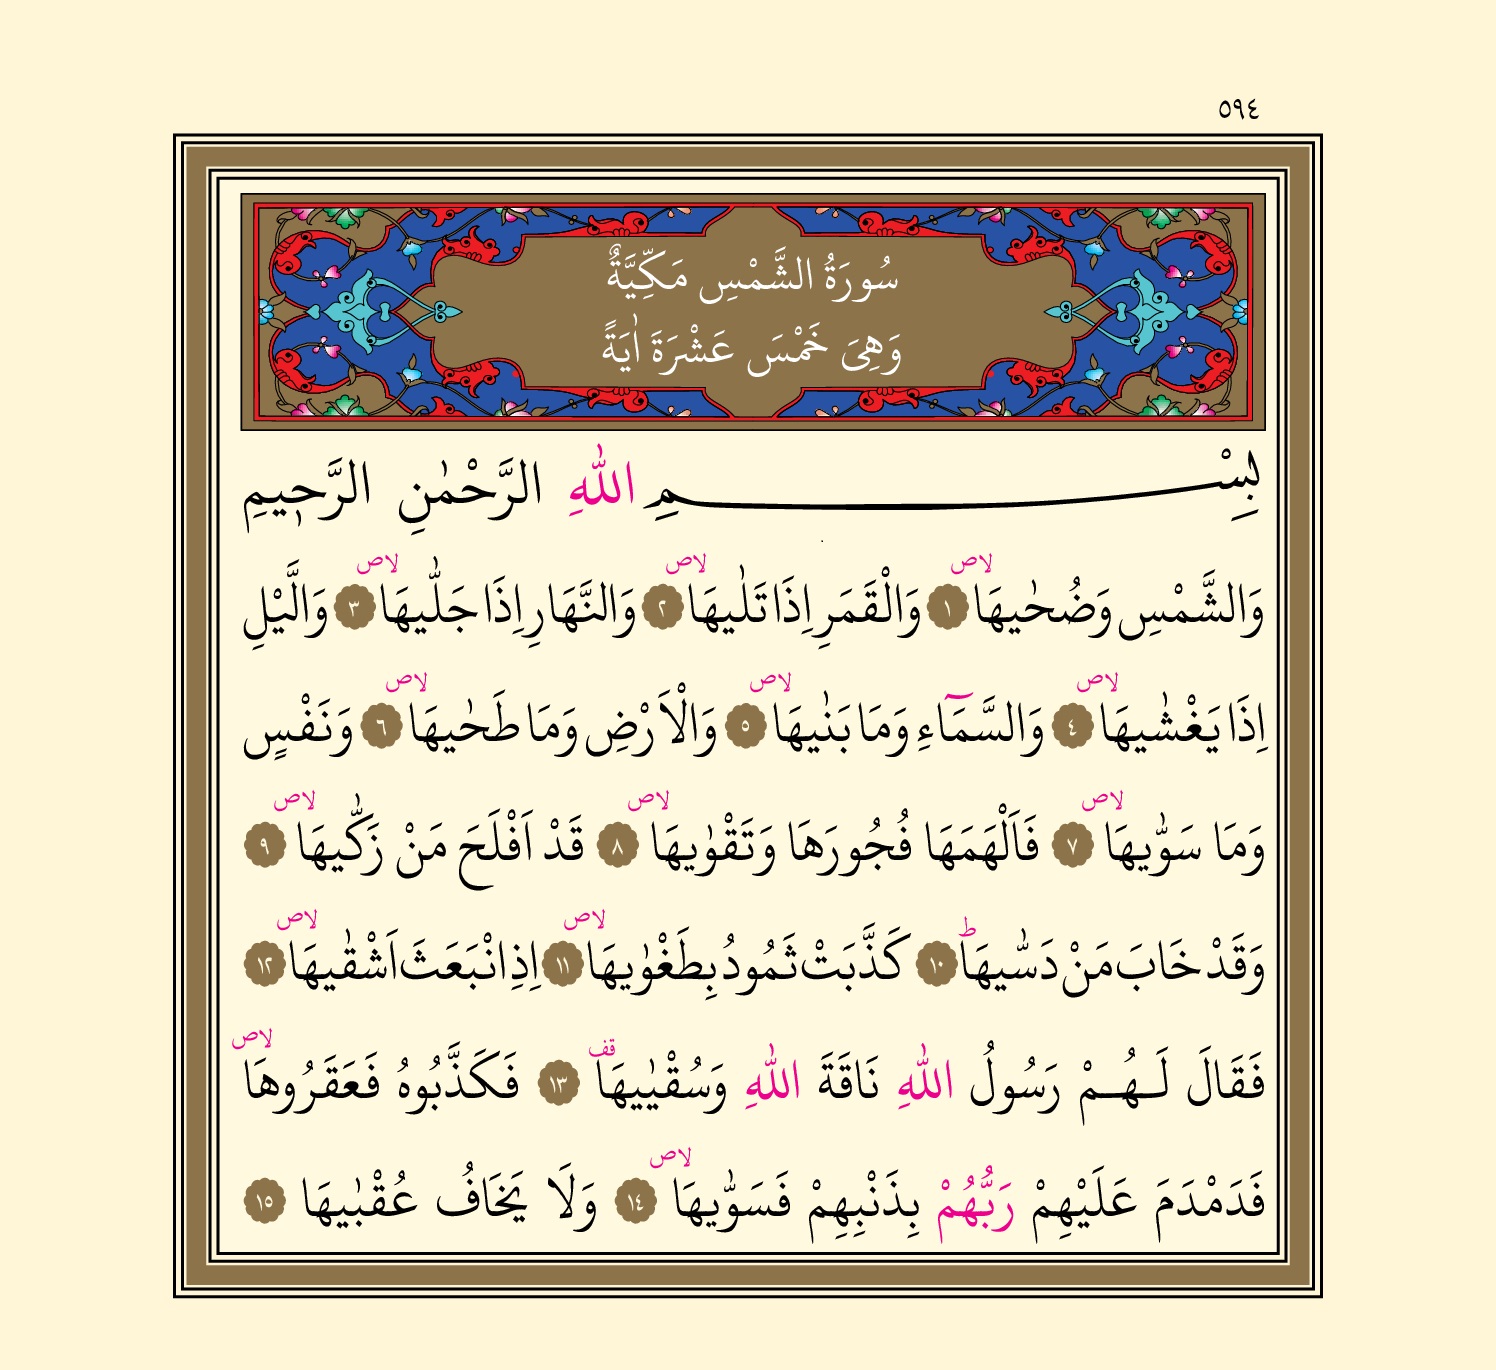 ٥٩٤
سُورَةُ الشَّمْسِ مَكِّيَّةٌ
وَهِىَ خَمْسَ عَشْرَةَ اٰيَةً
بِسْمِ اللّٰهِ الرَّحْمٰنِ الرَّح۪يمِ
وَالشَّمْسِ وَضُحٰيهَاۙۖ ﴿١﴾ وَالْقَمَرِ اِذَا تَلٰيهَاۙۖ ﴿٢﴾ وَالنَّهَارِ اِذَا جَلّٰيهَاۙۖ ﴿٣﴾ وَالَّيْلِ
اِذَا يَغْشٰيهَاۙۖ ﴿٤﴾ وَالسَّمَٓاءِ وَمَا بَنٰيهَاۙۖ ﴿٥﴾ وَالْاَرْضِ وَمَا طَحٰيهَاۙۖ ﴿٦﴾ وَنَفْسٍ
وَمَا سَوّٰيهَاۙۖ ﴿٧﴾ فَاَلْهَمَهَا فُجُورَهَا وَتَقْوٰيهَاۙۖ ﴿٨﴾ قَدْ اَفْلَحَ مَنْ زَكّٰيهَاۙۖ ﴿٩﴾
وَقَدْ خَابَ مَنْ دَسّٰيهَاۜ ﴿١٠﴾ كَذَّبَتْ ثَمُودُ بِطَغْوٰيهَاۙۖ ﴿١١﴾ اِذِ انْبَعَثَ اَشْقٰيهَاۙۖ ﴿١٢﴾
فَقَالَ لَهُمْ رَسُولُ اللّٰهِ نَاقَةَ اللّٰهِ وَسُقْيٰيهَا قف ﴿١٣﴾ فَكَذَّبُوهُ فَعَقَرُوهَاۙۖ
فَدَمْدَمَ عَلَيْهِمْ رَبُّهُمْ بِذَنْبِهِمْ فَسَوّٰيهَاۙۖ ﴿١٤﴾ وَلَا يَخَافُ عُقْبٰيهَا ﴿١٥﴾